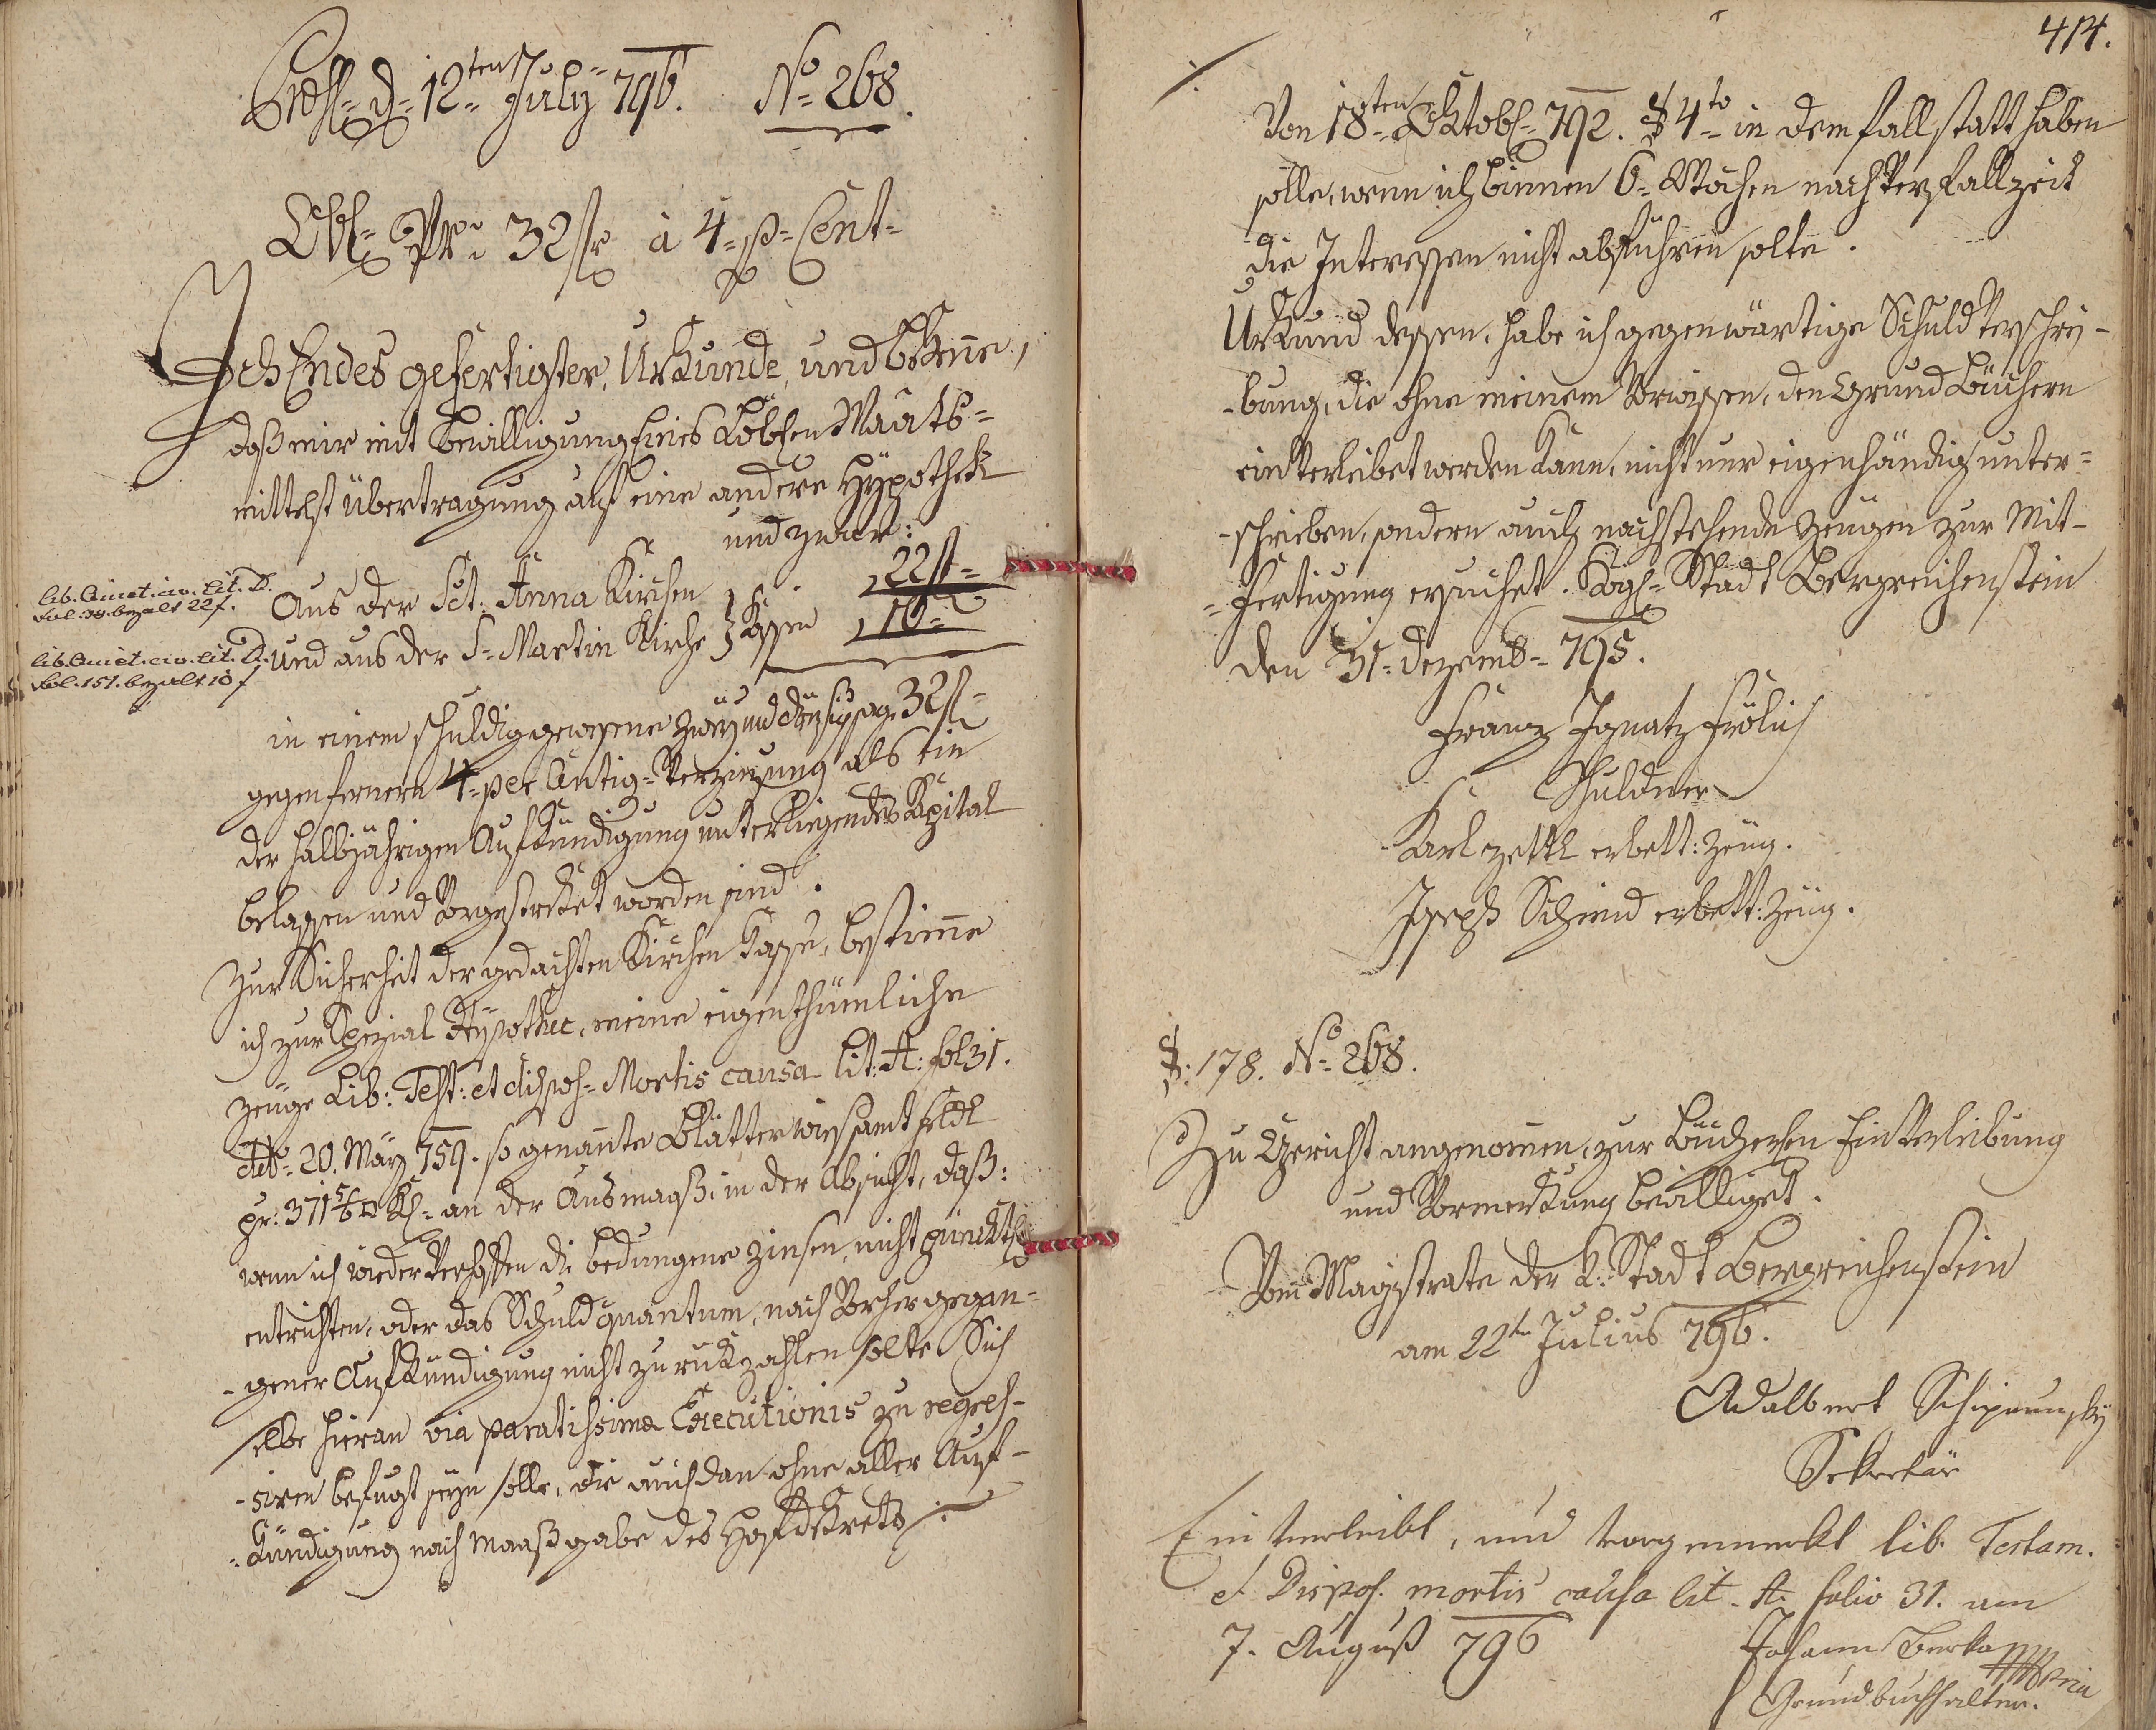 Præs. d. 12ten July 796. No 268.
Obl. Pr. 32 fr à 4 p Cent
Ich Endes gefertigter, Urkunde, und bekenne,
daß mir mit Bewilligung Eines Löbl:en Maåts=
mittelst übertragung auf eine andere Hypothek
und zwar:
Aus der Sct. Anna Kirchen . 22 f
und aus der S. Martin Kirche Kassen 10
lib. Quiet. civ. Lit. D.
fol. 38. bezalt 22 f.
lib. Quiet. civ. Lit. D.
fol. 151. bezalt 10 f
in einem schuldig gewesene zwey und dreyßig sage 32 f
gegen fernern 4. per Centig= Verzinsung als ein
der halbjährigen Aufkündigung unterliegendes Kapital
belassen und Vorgestreket worden sind.
Zur Sicherheit der gedachten Kirchen Kasse, bestimme
ich zur Spezial Hypothec, meine eigenthümliche
zeuge Lib: Test: et dispos= Mortis causa lit: A: fol 31.
ddto 20. May 759. so genannte Blätterwies samt Feldl
pr: 371 5/6 □ Kl= an der Ausmaaß, in der Absicht, daß:
wenn ich wieder Verhoffen die bedungene Zinsen, nicht pünktl
entrichten, oder das Schuldquantum, nach Vorhergegan=
-gener Aufkündigung nicht zurukzahlen solte Sich
selbe hieran via paratissima Executionis zu regres-
-siren befugt seyn solle, die auch dan ohne aller Auf-
=kündigung nach Maaßgabe des Hofdekrets ./.
414.
./.
Von 18ten Oktob= 792. § 4to in dem fall statt haben
solle, wenn ich binnen 6= Wochen nach Verfallzeit
die Interessen nicht abführen solte.
Urkund dessen, habe ich gegenwärtige Schuldverschrei-
-bung, die ohne meinem Vorwissen, den Grund Büchern
einverleibet werden kann, nicht nur eigenhändig unter=
-schrieben, sondern auch nachstehende Zeugen zur Mit-
=fertigung ersuchet. Kögl= Stadt Bergreichenstein
den 31= dezemb= 795.
Franz Ignatz Frölich
Schuldner
Karl Zettl erbett: Zeug.
Joseph Schmid erbett: Zeug.
§: 178. No 268.
Zu Gericht angenomen, zur Bücherlen Einverleibung
und Vormerkung bewilliget.
Vom Magistrate der K: Stadt Bergreichenstein
am 22ten Julius 796.
Adalbert
Sekretär
Einverleibt, und vorgemerkt lib. Testam.
et Dispos. mortis causa lit. A. folio 31. am
7. August 796
Johann Berka
Grundbuchhalter.